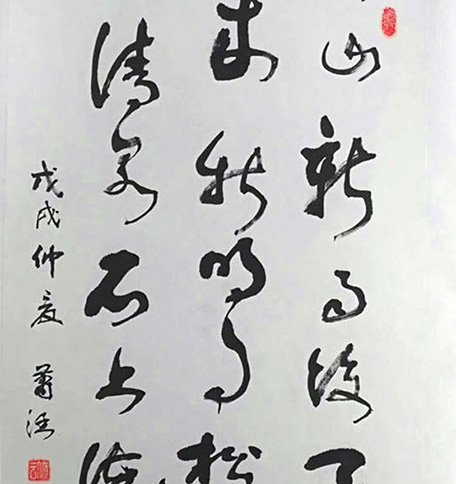 山新雨後天
來秋明月松
清泉石上流
戊戌仲夏 蕭